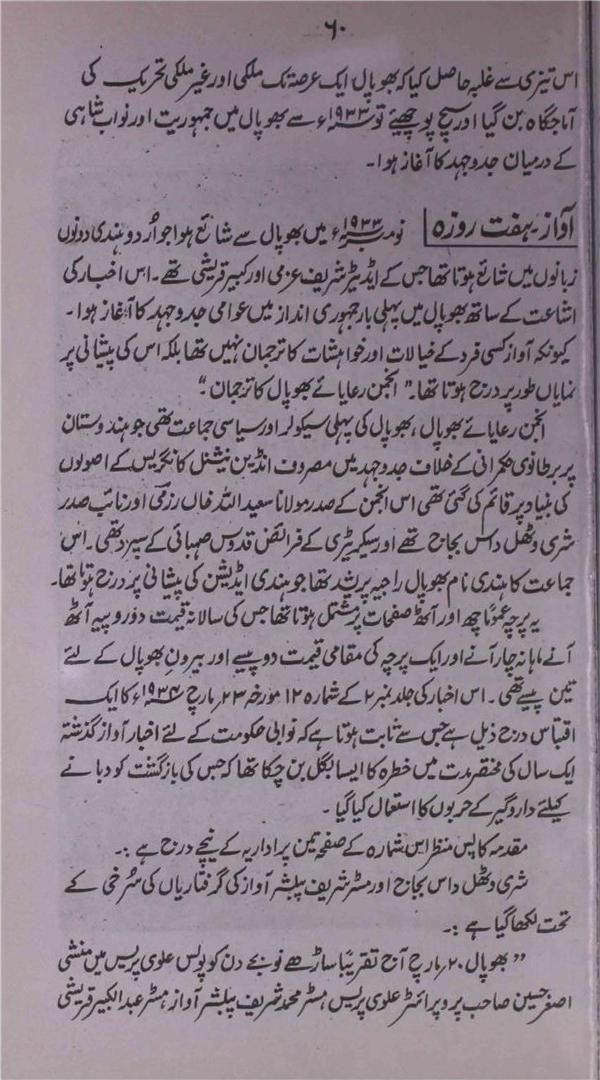 ۶۰
اس تیزی سے غلبہ حاصل کیا کہ بھوپال ایک عرصۂ تک ملکی اور غیر ملکی تحریک کی
آماجگاہ بن گیا اور سچ پوچھیئے تو ۱۹۳۳ء سے بھوپال میں جمہوریت اور نواب شاہی
کے درمیان جدوجہد کا آغاز ہوا۔
آواز۔ ہفت روزہ نومبر ۱۹۳۳ء میں بھوپال سے شائع ہوا جو اُردو ہندی دونوں
زبانوں میں شائع ہوتا تھا جس کے ایڈیٹر شریف عزمی اور کبیر قریشی تھے۔ اس اخبار کی
اشاعت کے ساتھ بھوپال میں پہلی بار جمہوری انداز میں عوامی جدوجہد کا آغاز ہوا۔
کیونکہ آواز کسی فرد کے خیالات اور خواہشات کا ترجمان نہیں تھا بلکہ اس کی پیشانی پر
نمایاں طور پر درج ہوتا تھا۔ " انجمن رعایائے بھوپال کا ترجمان۔"
انجمن رعایائے بھوپال، بھوپال کی پہلی سیکولر اور سیاسی جماعت تھی جو ہندوستان
پر برطانوی حکمرانی کے خلاف جدوجہد میں مصروف انڈین نیشنل کانگریس کے اصولوں
کی بنیاد پر قائم کی گئی تھی اس انجمن کے صدر مولانا سعید اللہ خاں رزمی اور نائب صدر
شری وٹھل داس بجاج تھے اور سکریٹری کے فرائض قدوس صہبائی کے سپرد تھی۔ اس
جماعت کا ہندی نام بھوپال راجیہ پریشد تھا جو ہندی ایڈیشن کی پیشانی پر درج ہوتا تھا۔
یہ پرچہ عموماً چھ اور آٹھ صفحات پر مشتمل ہوتا تھا جس کی سالانہ قیمت دو روپیہ آٹھ
آنے ماہانہ چار آنے اور ایک پرچہ کی مقامی قیمت دو پیسے اور بیرونِ بھوپال کے لئے
تین پیسے تھی۔ اس اخبار کی جلد نمبر ۲ کے شمارہ ۱۲ مورخہ ۲۳ مارچ ۱۹۳۴ء کا ایک
اقتباس درج ذیل ہے جس سے ثابت ہوتا ہے کہ نوابی حکومت کے لئے اخبار آواز گذشتہ
ایک سال کی مختصر مدت میں خطرہ کا ایسا بگل بن چکا تھا کہ جس کی بازگشت کو دبانے
کیلئے دارو گیر کے حربوں کا استعمال کیا گیا۔
مقدمہ کا پس منظر اس شمارہ کے صفحہ تین پر اداریہ کے نیچے درج ہے :۔
شری وٹھل داس بجاج اور مسٹر شریف پبلشر آواز کی گرفتاریاں کی سُرخی کے
تحت لکھا گیا ہے :۔
" بھوپال ۲۰ مارچ آج تقریباً ساڑھے نو بجے دن کو پولس علوی پریس میں منشی
اصغر حسین صاحب پروپرائٹر علوی پریس مسٹر محمد شریف پبلشر آواز مسٹر عبد الکبیر قریشی